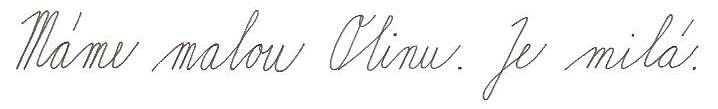 Máme malou Olinu. Je milá.